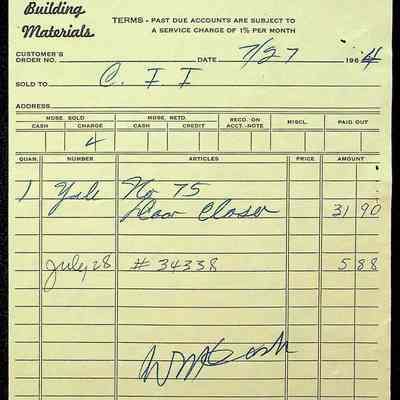 Building
Materials
TERMS - PAST DUE ACCOUNTS ARE SUBJECT TO
A SERVICE CHARGE OF 1% PER MONTH
CUSTOMER'S
ORDER NO. DATE 7/27 1964
SOLD TO C. I I
ADDRESS
MDSE. SOLD MDSE. RETD. RECD. ON ACCT.-NOTE MISCL. PAID OUT
CASH CHARGE CASH CREDIT
4
QUAN. NUMBER ARTICLES PRICE AMOUNT
1 Yale No 75
Door Closer 31 90
July 28 # 34338 5 88